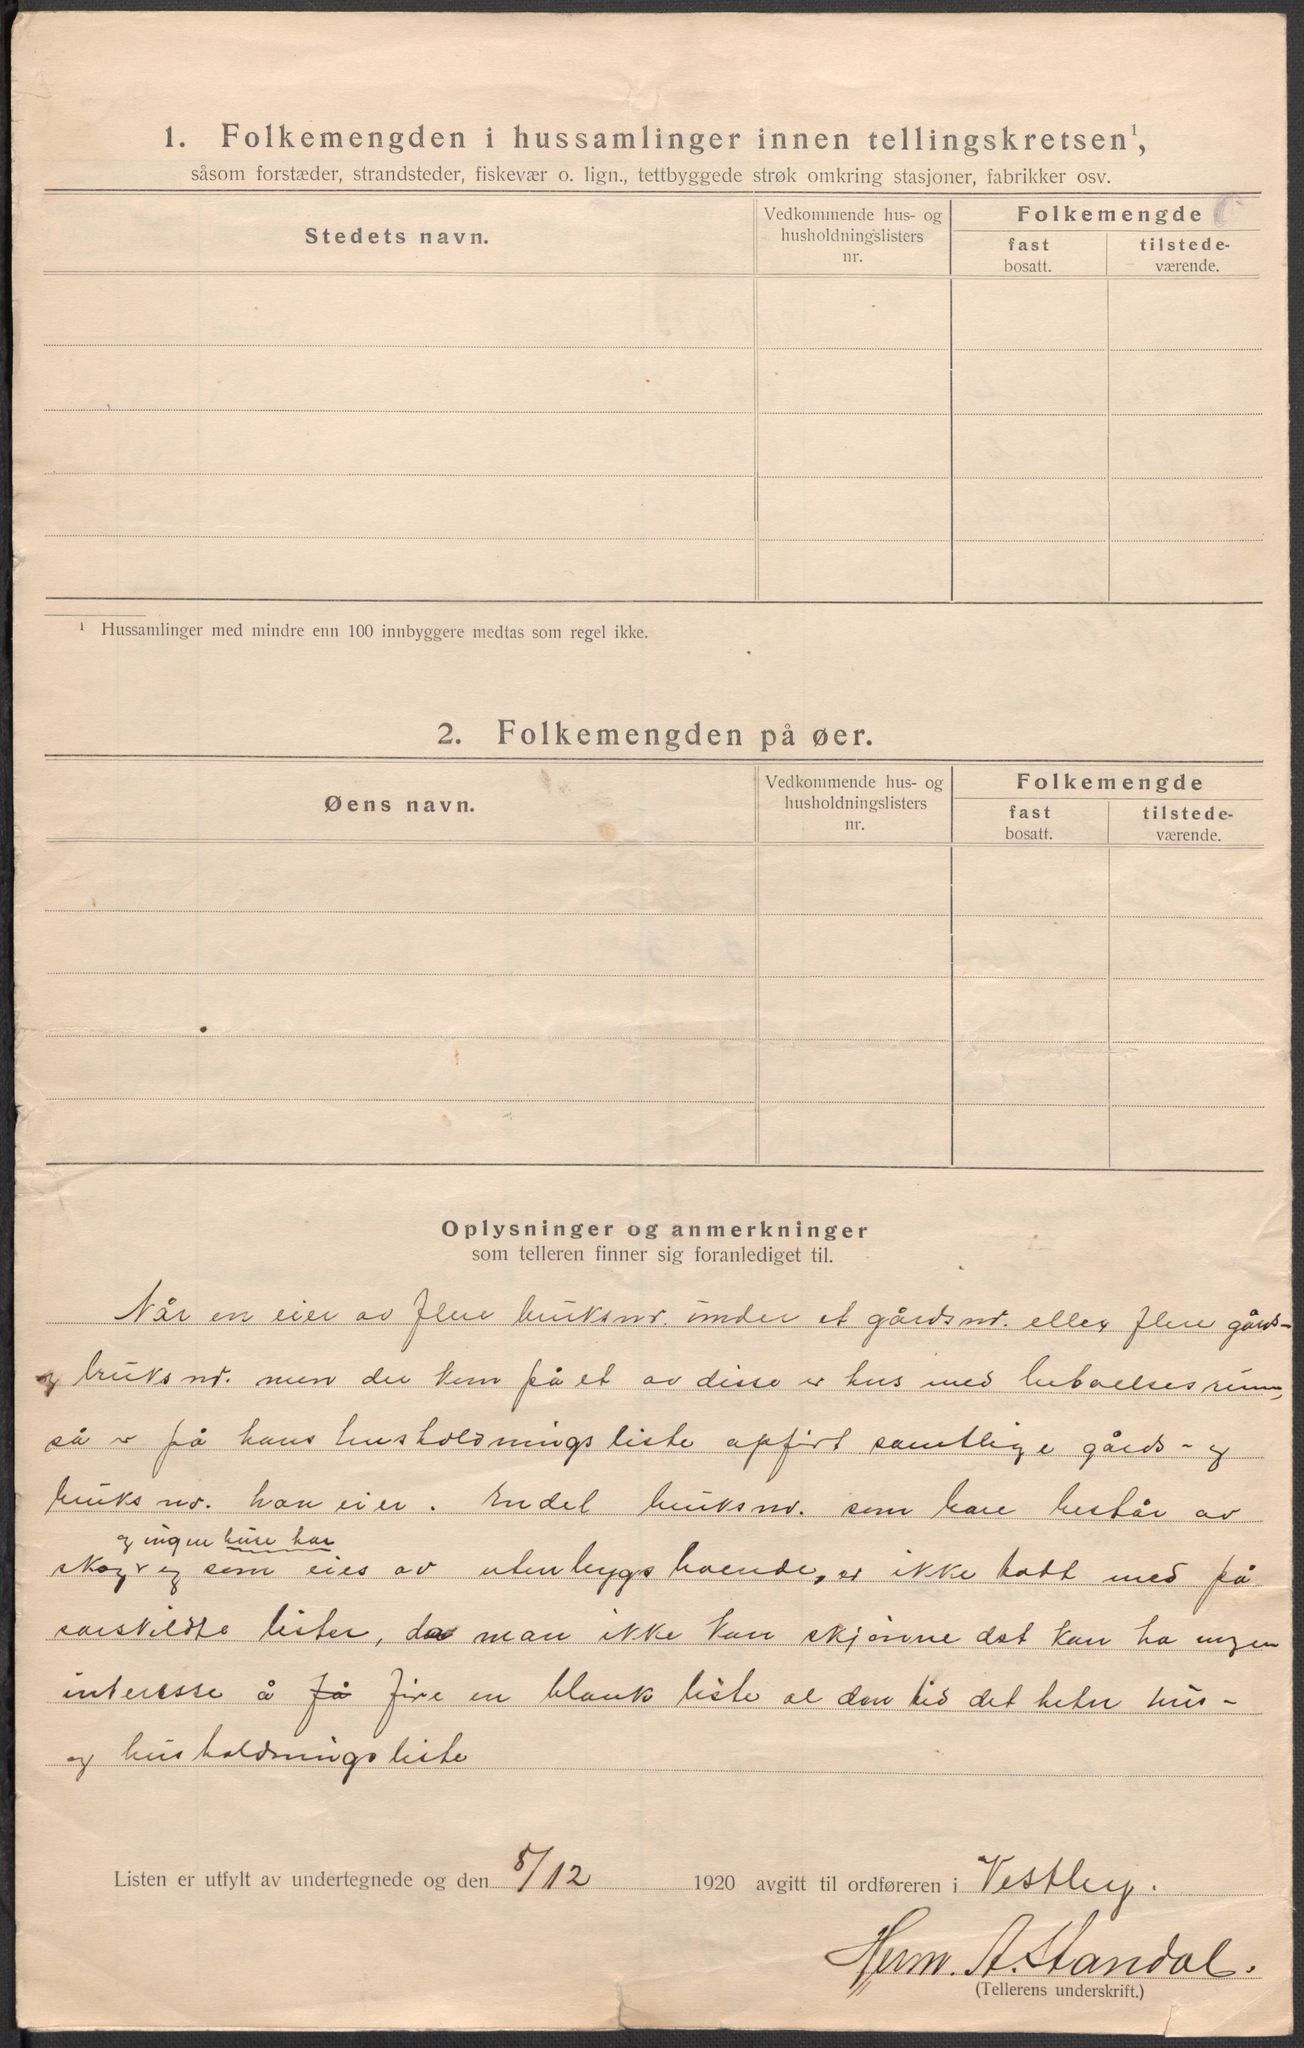 1. Folkemengden i hussamlinger innen tellingskretsen¹,
såsom forstæder, strandsteder, fiskevær o. lign., tettbyggede strøk omkring stasjoner, fabrikker osv.
Stedets navn.
Vedkommende hus- og
husholdningslisters
nr.
Folkemengde
fast
bosatt.
tilstede-
værende.
¹ Hussamlinger med mindre enn 100 innbyggere medtas som regel ikke.
2. Folkemengden på øer.
Øens navn.
Vedkommende hus- og
husholdningslisters
nr.
Folkemengde
fast
bosatt.
tilstede-
værende.
Oplysninger og anmerkninger
som telleren finner sig foranlediget til.
Når en eier av flere bruksnr. under et gårdsnr. eller flere gårds-
og bruksnr. men der kun på et av disse er hus med beboelsesrum,
så er på hans husholdningsliste opført samtlige gårds- og
bruksnr. han eier. Endel bruksnr. som bare består av
og ingen huse har
skog og som eies av utenbygs boende, er ikke tatt med på
særskildte lister, da man ikke kan skjønne det kan ha nogen
interesse å få føre en blank liste al den tid det heter hus-
og husholdningsliste
Listen er utfylt av undertegnede og den 5/12 1920 avgitt til ordføreren i Vestby.
Herm. A. Standal.
(Tellerens underskrift.)